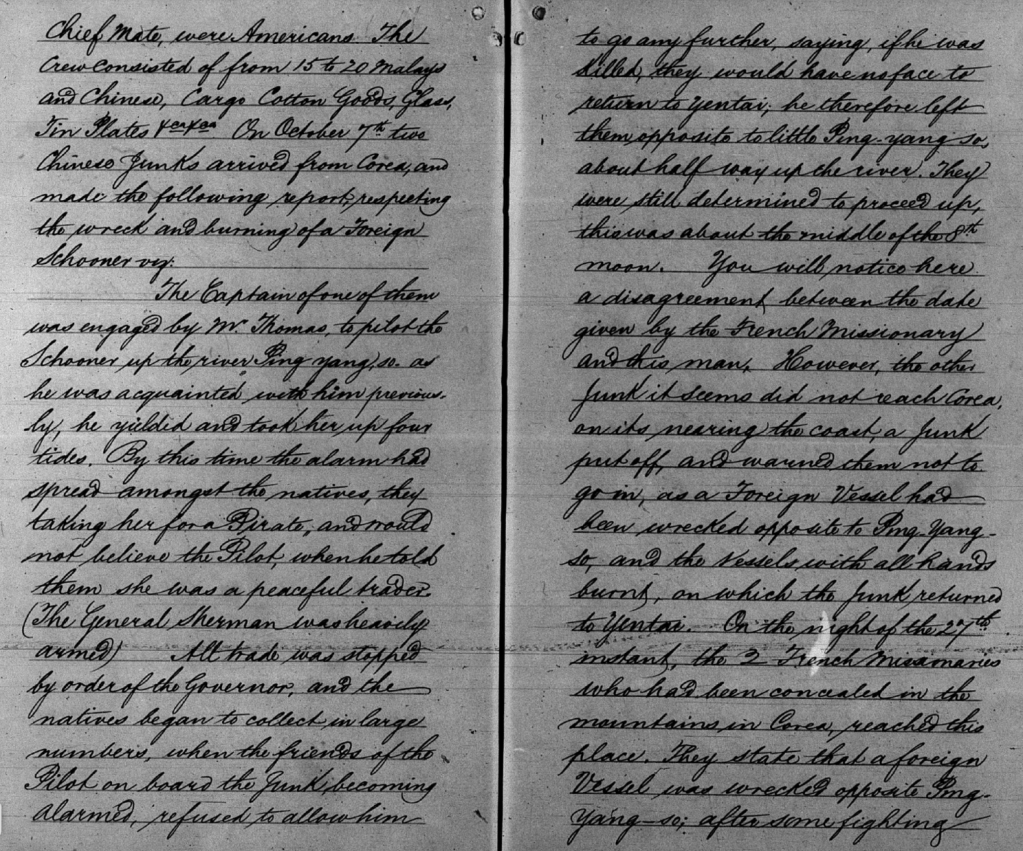 Chief Mate, were Americans. The
Crew consisted of from 15 to 20 Malays
and Chinese, Cargo Cotton Goods, Glass,
Tin Plates &ca &ca On October 7th two
Chinese Junks arrived from Corea, and
made the following report, respecting
the wreck and burning of a Foreign
Schooner viz:
The Captain of one of them
was engaged by Mr Thomas, to pilot the
Schooner up the river Ping yang, so. as
he was acquainted with him previous-
ly, he yielded and took her up four
tides. By this time the alarm had
spread amongst the natives, they
taking her for a Pirate, and would
not believe the Pilot, when he told
them she was a peaceful trader.
(The General Sherman was heavily
armed) All trade was stopped
by order of the Governor, and the
natives began to collect in large
numbers, when the friends of the
Pilot on board the Junk, becoming
alarmed, refused to allow him
to go any further, saying, if he was
killed, they would have no face to
return to Yentai; he therefore left
them, opposite to little Ping-yang-so,
about half way up the river. They
were still determined to proceed up,
this was about the middle of the 8th
moon. You will notice here
a disagreement, between the date
given by the French Missionary
and this man. However, the other
Junk it seems did not reach Corea,
on its nearing the coast, a Junk
put off, and warned them not to
go in, as a Foreign Vessel had
been wrecked opposite to Ping-Yang-
so, and the Vessels with all hands
burnt, on which the Junk returned
to Yentai. On the night of the 27th
instant, the 2 French Missionaries
who had been concealed in the
mountains in Corea, reached this
place. They state that a foreign
Vessel was wrecked opposite Ping-
Yang-so; after some fighting